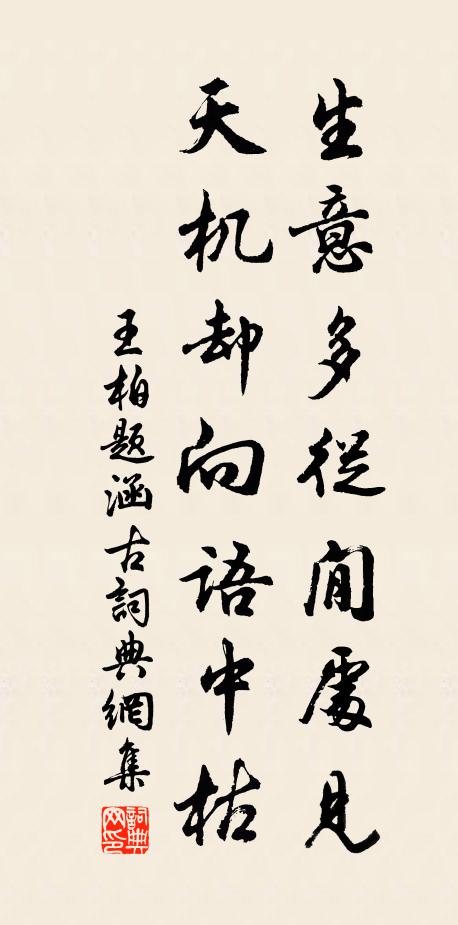 生意多從閒處見
天机却向語中枯
王柏題涵古詞典網集
詞典网印